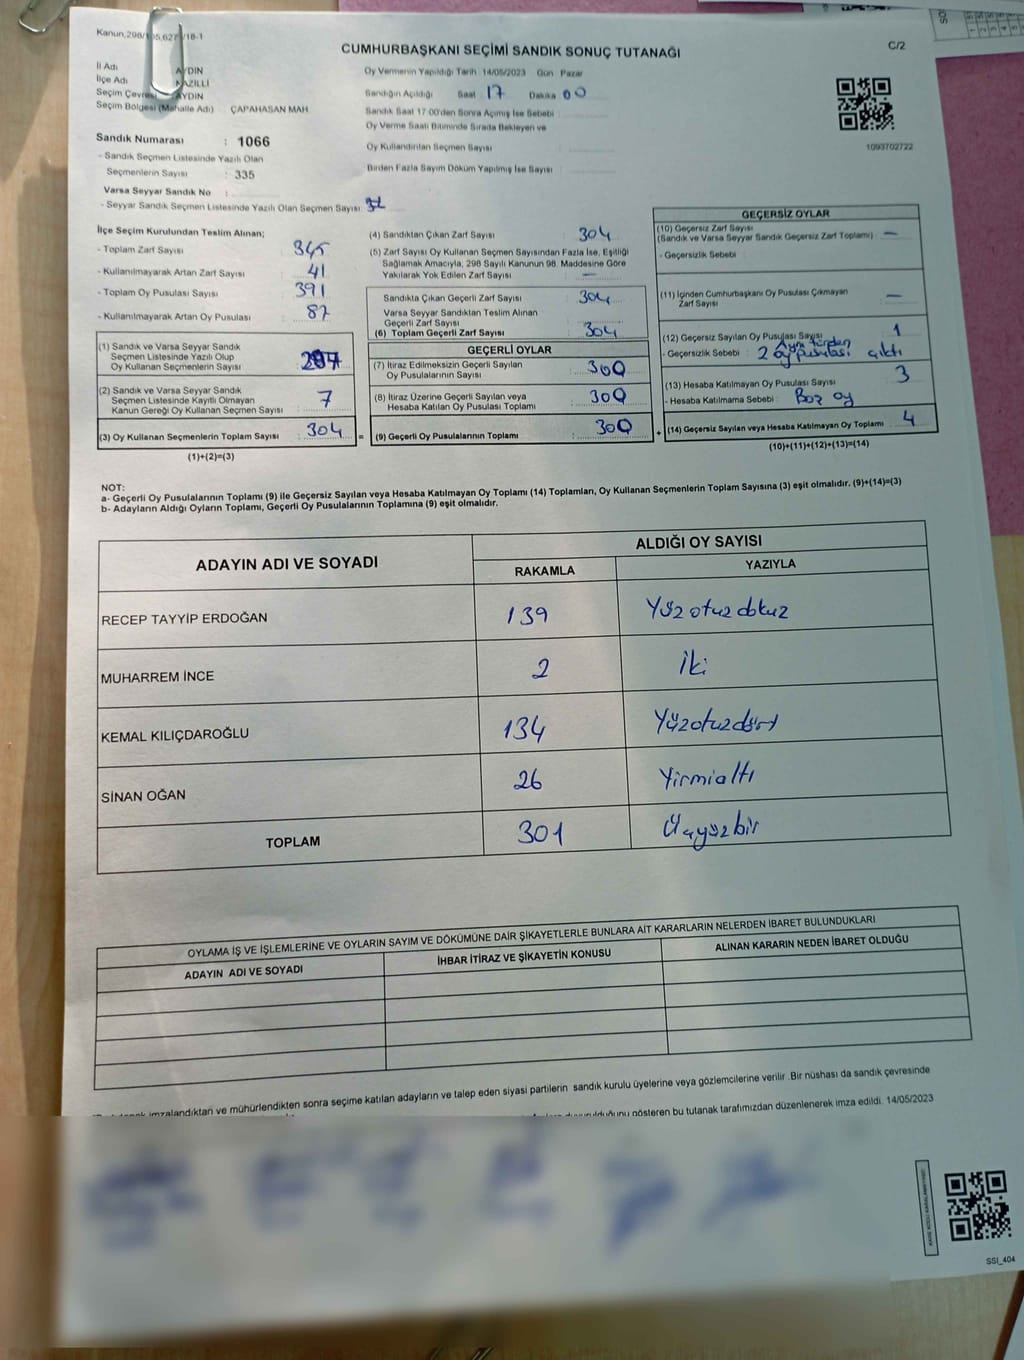 Kanun,298/105,627 /18-1
CUMHURBAŞKANI SEÇİMİ SANDIK SONUÇ TUTANAĞI
C/2
İl Adı AYDIN
İlçe Adı NAZİLLİ
Seçim Çevresi AYDIN
Seçim Bölgesi (Mahalle Adı) ÇAPAHASAN MAH
Oy Vermenin Yapıldığı Tarih 14/05/2023 Gün Pazar
Sandığın Açıldığı Saat 17 Dakika 00
Sandık Saat 17:00'den Sonra Açılmış İse Sebebi
Oy Verme Saati Bitiminde Sırada Bekleyen ve
Oy Kullandırılan Seçmen Sayısı
Birden Fazla Sayım Döküm Yapılmış İse Sayısı
1093702722
Sandık Numarası : 1066
- Sandık Seçmen Listesinde Yazılı Olan
Seçmenlerin Sayısı : 335
Varsa Seyyar Sandık No :
- Seyyar Sandık Seçmen Listesinde Yazılı Olan Seçmen Sayısı:
İlçe Seçim Kurulundan Teslim Alınan;
- Toplam Zarf Sayısı : 345
- Kullanılmayarak Artan Zarf Sayısı : 41
- Toplam Oy Pusulası Sayısı : 391
- Kullanılmayarak Artan Oy Pusulası : 87
(1) Sandık ve Varsa Seyyar Sandık
Seçmen Listesinde Yazılı Olup
Oy Kullanan Seçmenlerin Sayısı : 297
(2) Sandık ve Varsa Seyyar Sandık
Seçmen Listesinde Kayıtlı Olmayan
Kanun Gereği Oy Kullanan Seçmen Sayısı : 7
(3) Oy Kullanan Seçmenlerin Toplam Sayısı : 304
(1)+(2)=(3)
(4) Sandıktan Çıkan Zarf Sayısı : 304
(5) Zarf Sayısı Oy Kullanan Seçmen Sayısından Fazla İse, Eşitliği
Sağlamak Amacıyla, 298 Sayılı Kanunun 98. Maddesine Göre
Yakılarak Yok Edilen Zarf Sayısı : —
Sandıkta Çıkan Geçerli Zarf Sayısı : 304
Varsa Seyyar Sandıktan Teslim Alınan
Geçerli Zarf Sayısı :
(6) Toplam Geçerli Zarf Sayısı : 304
GEÇERLİ OYLAR
(7) İtiraz Edilmeksizin Geçerli Sayılan
Oy Pusulalarının Sayısı : 300
(8) İtiraz Üzerine Geçerli Sayılan veya
Hesaba Katılan Oy Pusulası Toplamı : 300
= (9) Geçerli Oy Pusulalarının Toplamı : 300 +
GEÇERSİZ OYLAR
(10) Geçersiz Zarf Sayısı
(Sandık ve Varsa Seyyar Sandık Geçersiz Zarf Toplamı) : —
- Geçersizlik Sebebi :
(11) İçinden Cumhurbaşkanı Oy Pusulası Çıkmayan
Zarf Sayısı : —
(12) Geçersiz Sayılan Oy Pusulası Sayısı : 1
- Geçersizlik Sebebi : Aynı türden
2 oy pusulası çıktı
(13) Hesaba Katılmayan Oy Pusulası Sayısı : 3
- Hesaba Katılmama Sebebi : Boş oy
(14) Geçersiz Sayılan veya Hesaba Katılmayan Oy Toplamı : 4
(10)+(11)+(12)+(13)=(14)
NOT:
a- Geçerli Oy Pusulalarının Toplamı (9) ile Geçersiz Sayılan veya Hesaba Katılmayan Oy Toplamı (14) Toplamları, Oy Kullanan Seçmenlerin Toplam Sayısına (3) eşit olmalıdır. (9)+(14)=(3)
b- Adayların Aldığı Oyların Toplamı, Geçerli Oy Pusulalarının Toplamına (9) eşit olmalıdır.
ADAYIN ADI VE SOYADI ALDIĞI OY SAYISI
RAKAMLA YAZIYLA
RECEP TAYYİP ERDOĞAN 139 Yüz otuz dokuz
MUHARREM İNCE 2 İki
KEMAL KILIÇDAROĞLU 134 Yüzotuzdört
SİNAN OĞAN 26 Yirmialtı
TOPLAM 301 Üçyüzbir
OYLAMA İŞ VE İŞLEMLERİNE VE OYLARIN SAYIM VE DÖKÜMÜNE DAİR ŞİKAYETLERLE BUNLARA AİT KARARLARIN NELERDEN İBARET BULUNDUKLARI
ADAYIN ADI VE SOYADI İHBAR İTİRAZ VE ŞİKAYETİN KONUSU ALINAN KARARIN NEDEN İBARET OLDUĞU
imzalandıktan ve mühürlendikten sonra seçime katılan adayların ve talep eden siyasi partilerin sandık kurulu üyelerine veya gözlemcilerine verilir .Bir nüshası da sandık çevresinde
gösteren bu tutanak tarafımızdan düzenlenerek imza edildi. 14/05/2023
SSI_404